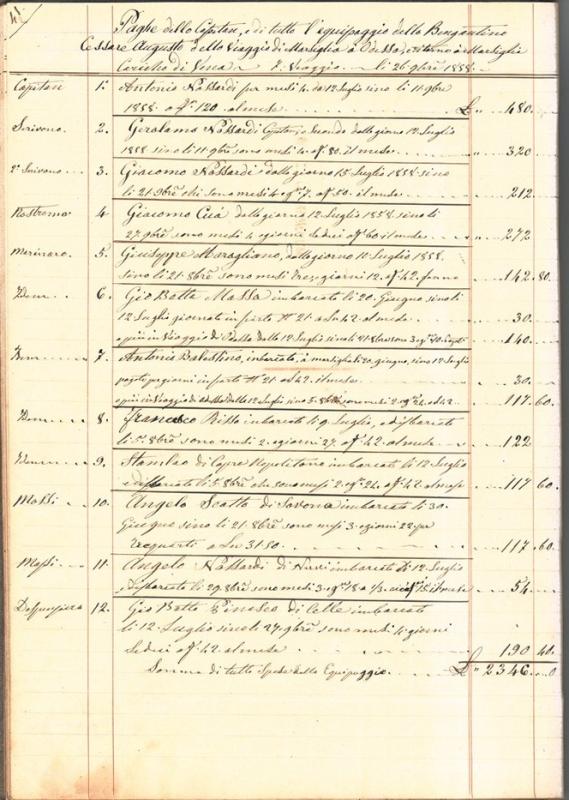 41.
Paghe dello Capitan, e di tutto l'equipaggio dello Bergantino
Cessare Augusto dello Viaggio di Marsiglia a Odessa, e ritorno à Marsiglia
2. Viaggio. li 26 9bre 1858.
Capitan 1. Antonio Nassardi per mesi 4. da 12 Luglio sino li 11 9bre
1858. a 120 al mese £ 480.
Scrivano. 2. Gerolamo Nassardi Capitan secondo dallo giorno 12 Luglio
1858 sino li 11 9bre sono mesi 4. a 80. il mese 320
2° Scrivano. 3. Giacomo Nassardi dallo giorno 15 Luglio 1858 sino
li 21 9bre che sono mesi 4 7. a 50. il mese 212
Nostromo 4. Giacomo dallo giorno 12 Luglio 1858 sino li
27 9bre sono mesi 4 giorni sedici a 60 il mese 272
Marinaro. 5. Giuseppe Maragliano, dallo giorno 10 Luglio 1858.
sino li 21. 8bre sono mesi Tre, e giorni 12. a 42. 142.80.
Idem 6. Gio Batta Massa imbarcato li 20. Giugno sino li
12 Luglio giornate in porto N° 21 a 42. al mese 30.
e più in Viaggio di Odessa dallo 12 Luglio sino li 21 8bre sono 3 140.
Idem 7. Antonio Balestino, imbarcato, à Marsiglia li 20. giugno, sino 12 Luglio
pagato per giorni in porto N° 21. a 42. il mese 30.
e più in Viaggio di Odessa dallo 12 Luglio sino 5. 8bre sono mesi 2. 24. a 42 117.60.
Idem 8. Francesco imbarcato li 9. Luglio, e disbarcato
li 5. 8bre sono mesi 2. e giorni 27. a 42. al mese 122
Idem 9. di Napolitano imbarcato li 12 Luglio
e disbarcato li 5. 8bre che sono mesi 2. 24. a 42. al mese 117.60.
Mossi 10. Angelo Scotto di Savona imbarcato li 30.
Giugno sino li 21 8bre sono mesi 3. e giorni 22. per
a 31.50. 117.60.
Mossi 11. Angelo Nassardi di imbarcato li 12 Luglio
Disbarcato li 29. 8bre sono mesi 3. 18 a 15 il mese 54.
12. Gio Batta di Celle imbarcato
li 12. Luglio sino li 27. 9bre sono mesi 4. giorni
Sedici a 42 al mese 190.40.
Somma di tutto Spese dello Equipaggio £ 2346. 0